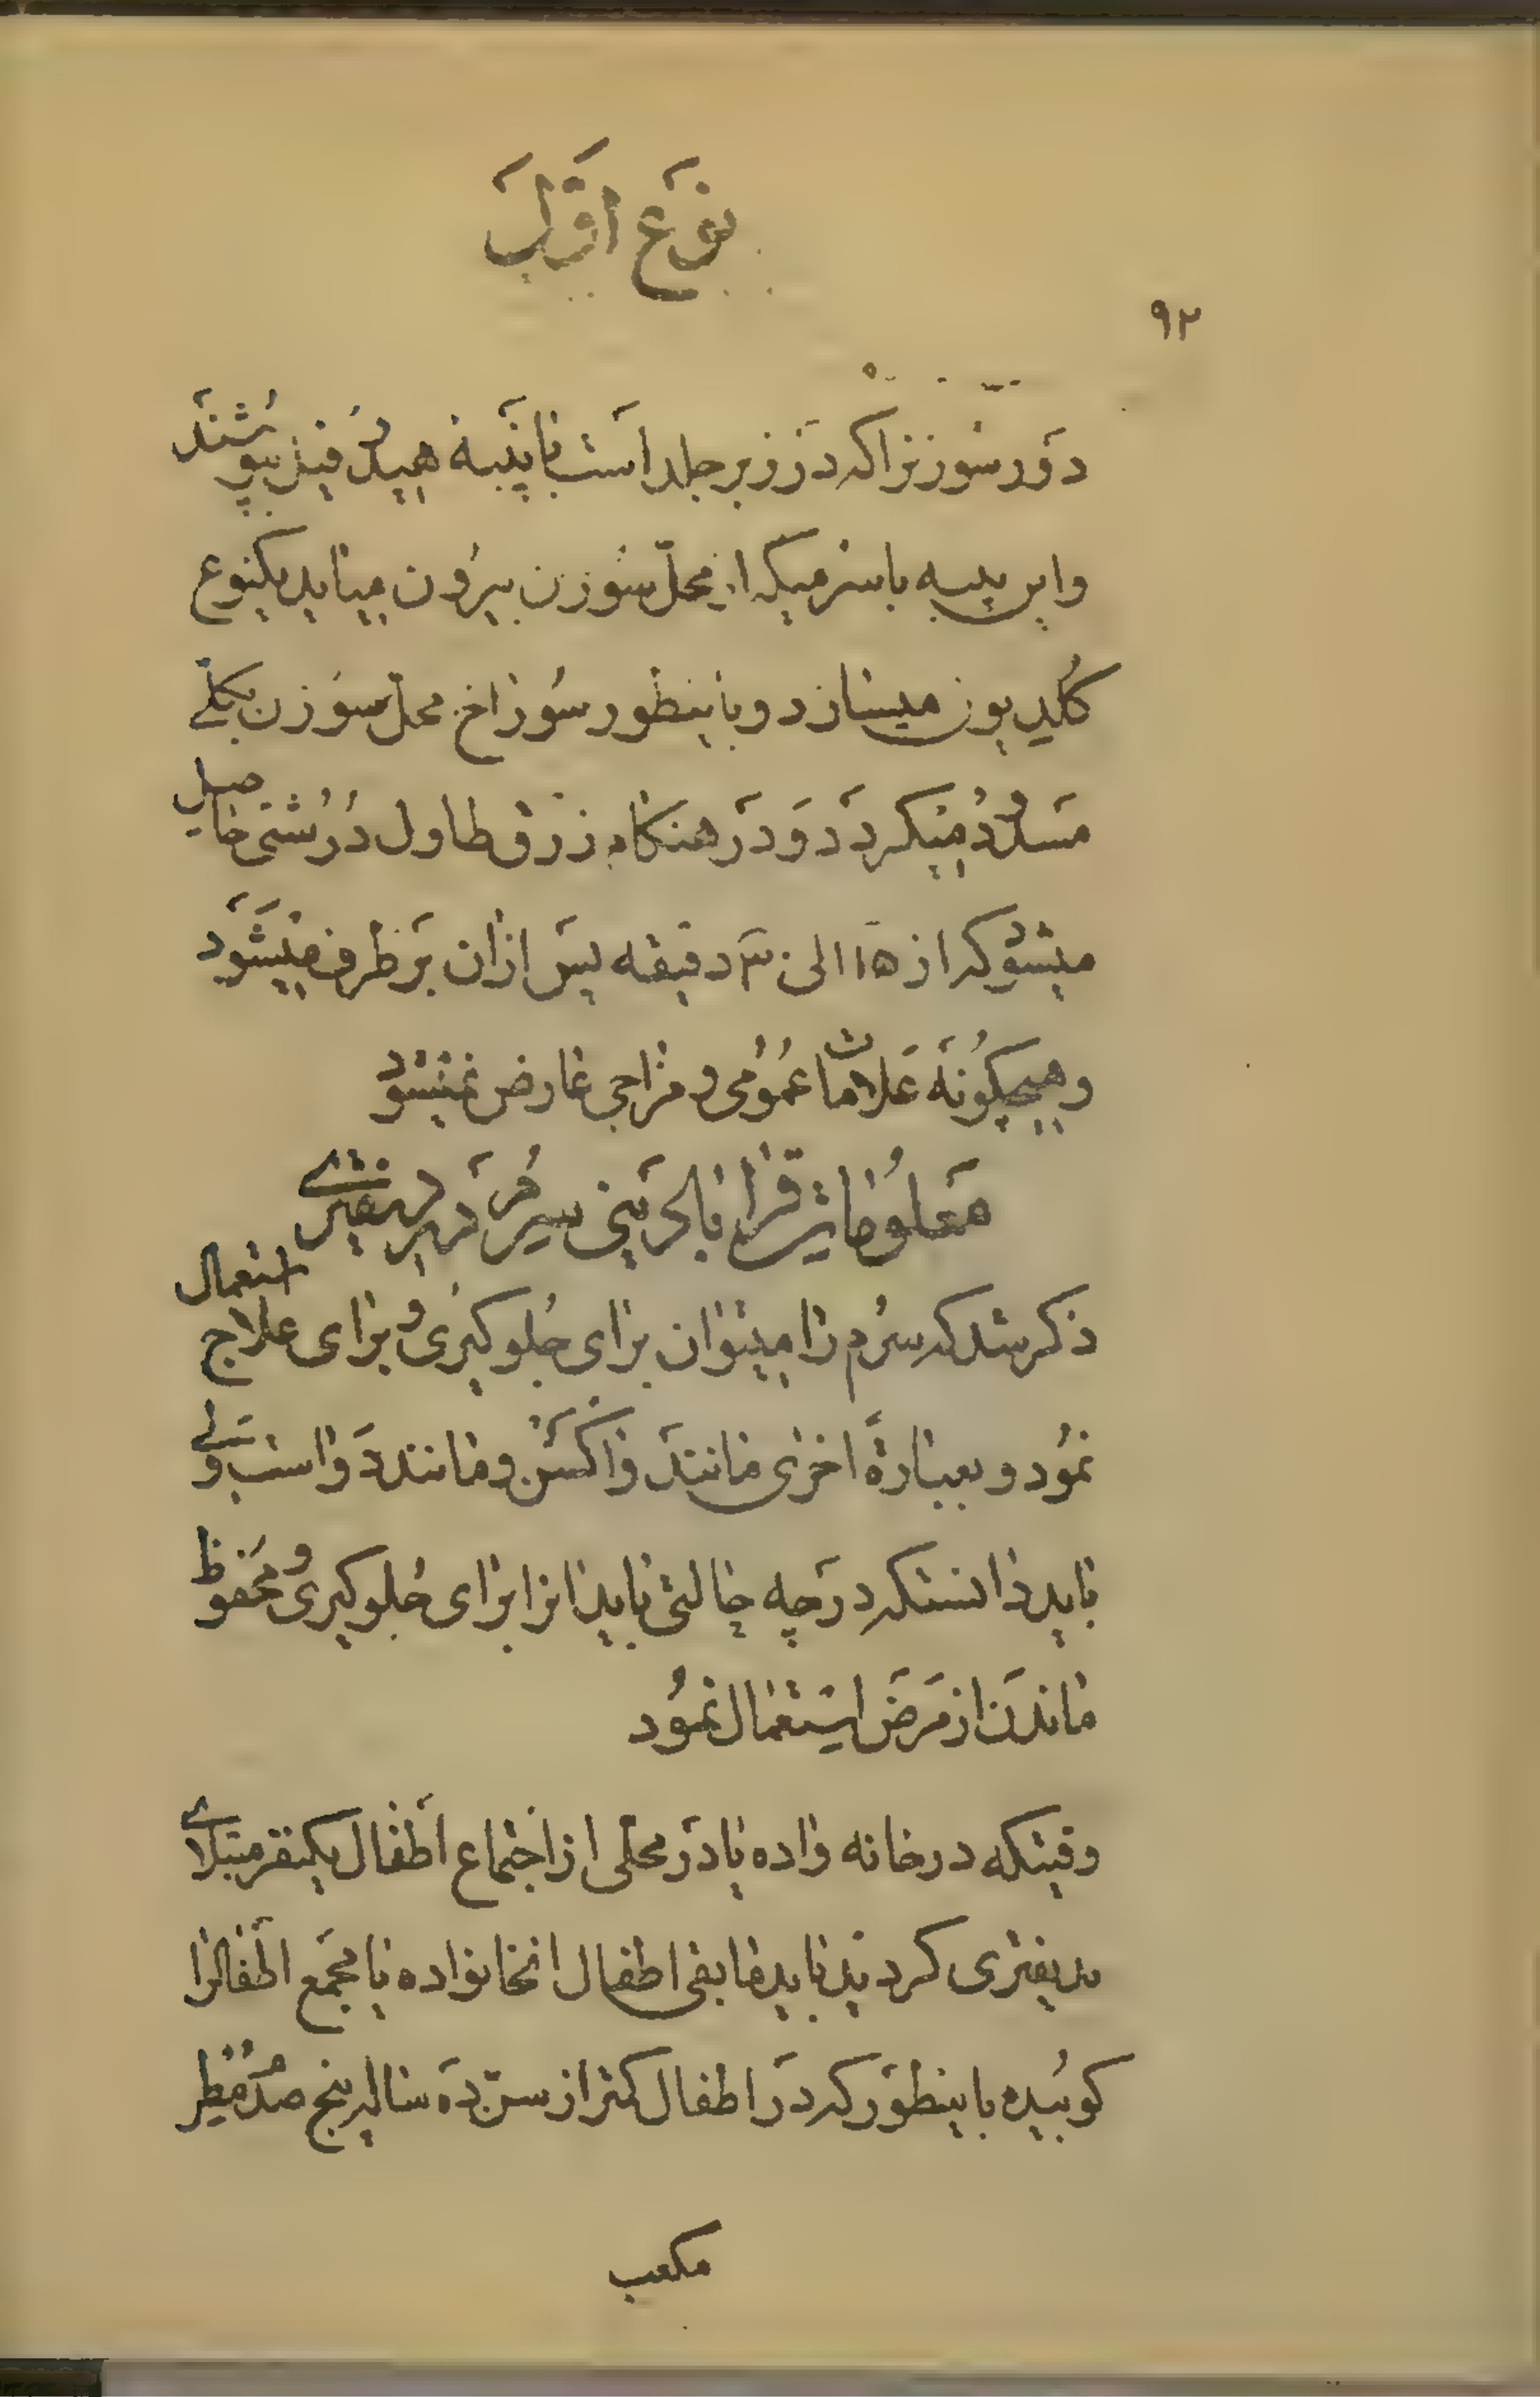 نوع اول
۹۲
دور سوزنرا که در زیر جلد است با پنبه هیدرفیل بپوشند
و این پنبه با سرمیکه از محل سوزن بیرون میاید یکنوع
کلدیون میسازد و باینطور سوراخ محل سوزن بکلی
مسدود میگردد و در هنگام زرق طاول درشتی حاصل
میشود که از ۱۵ الی ۳۰ دقیقه پس از آن برطرف میشود
و هیچگونه علامات عمومی و مزاجی عارض نمیشود
معلومات سرم در دیفتری
ذکر شد که سرم را میتوان برای جلوگیری و برای علاج استعمال
نمود و بعبارة اخری مانند واکسن و مانند دوا است ولی
باید دانستکه در چه حالتی باید انرا برای جلوگیری و محفوظ
ماندن از مرض استعمال نمود
وقتیکه در خانه واده یا در محلی از اجتماع اطفال یکنفر مبتلای
بدیفتری کردید باید مابقی اطفال انخانواده یا مجمع اطفالرا
کوبیده باینطور که در اطفال کمتر از سن ده ساله پنج صدم
مکعب